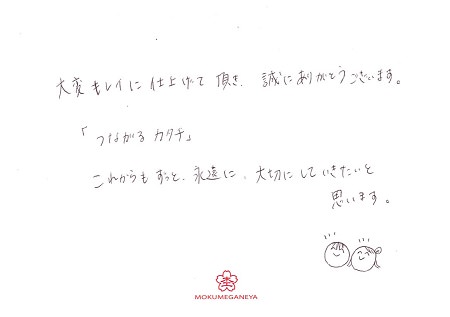 大変キレイに仕上げて頂き、誠にありがとうございます。
「つながるカタチ」
これからもずっと、永遠に、大切にしていきたいと
思います。
MOKUMEGANEYA